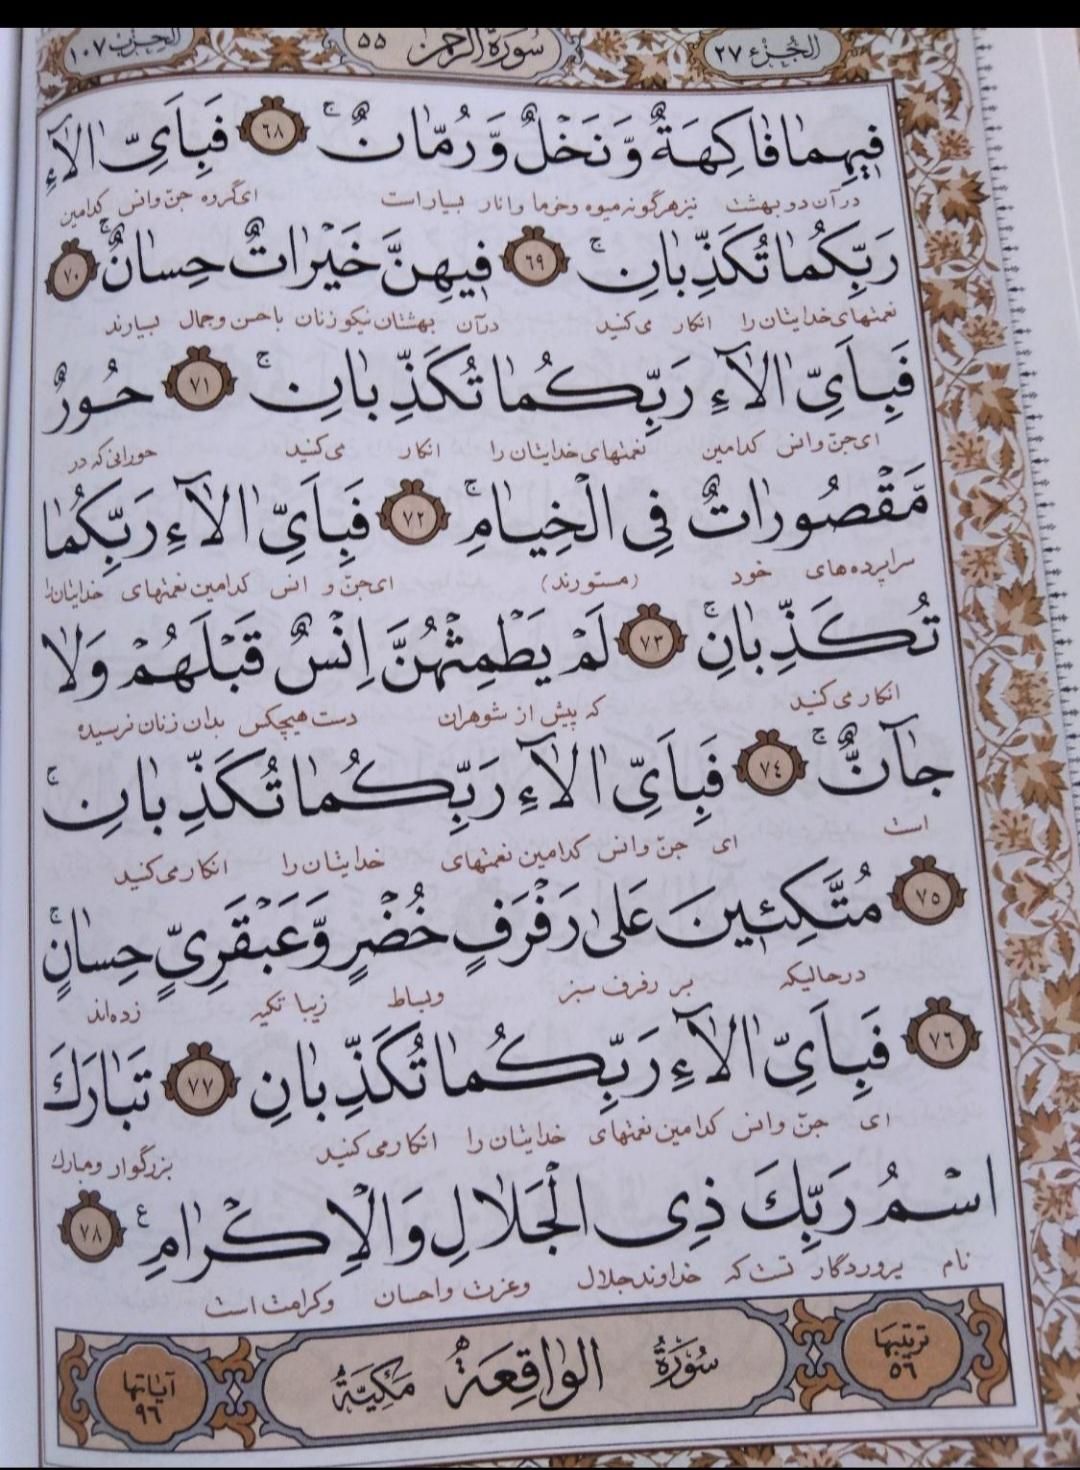 الجزء ۲۷ سورة الرحمن ۵۵ الحزب ۱۰۷
فيهِما فاكِهَةٌ وَ نَخْلٌ وَ رُمّانٌ ۚ ﴿٦٨﴾ فَبِاَیِّ الآءِ
در آن دو بهشت نیز هرگونه میوه و خرما و انار بسیار است ای گروه جنّ و انس کدامین
رَبِّكُما تُكَذِّبانِ ۚ ﴿٦٩﴾ فيهِنَّ خَيْراتٌ حِسانٌ ۚ ﴿٧٠﴾
نعمتهای خدایتان را انکار می‌کنید در آن بهشتان نیکو زنان با حسن و جمال بسیارند
فَبِاَیِّ الآءِ رَبِّكُما تُكَذِّبانِ ۚ ﴿٧١﴾ حُورٌ
ای جنّ و انس کدامین نعمتهای خدایتان را انکار می‌کنید حورانی که در
مَّقْصُوراتٌ فِی الْخِيامِ ۚ ﴿٧٢﴾ فَبِاَیِّ الآءِ رَبِّكُما
سراپرده‌های خود (مستورند) ای جنّ و انس کدامین نعمتهای خدایتان را
تُكَذِّبانِ ۚ ﴿٧٣﴾ لَمْ يَطْمِثْهُنَّ اِنْسٌ قَبْلَهُمْ وَلا
انکار می‌کنید که پیش از شوهران دست هیچکس بدان زنان نرسیده
جآنٌّ ۚ ﴿٧٤﴾ فَبِاَیِّ الآءِ رَبِّكُما تُكَذِّبانِ ۚ
است ای جنّ و انس کدامین نعمتهای خدایتان را انکار می‌کنید
﴿٧٥﴾ مُتَّكِئينَ عَلى رَفْرَفٍ خُضْرٍ وَّعَبْقَرِیٍّ حِسانٍ ۚ
درحالیکه بر رفرف سبز و بساط زیبا تکیه زده‌اند
﴿٧٦﴾ فَبِاَیِّ الآءِ رَبِّكُما تُكَذِّبانِ ﴿٧٧﴾ تَبارَكَ
ای جنّ و انس کدامین نعمتهای خدایتان را انکار می‌کنید بزرگوار و مبارک
اسْمُ رَبِّكَ ذِی الْجَلالِ وَالْاِكْرامِ ع ﴿٧٨﴾
نام پروردگار تست که خداوند جلال و عزت و احسان و کرامت است
ترتیبها ۵٦ سُورَةُ الواقِعَة مَكِّيَّةٌ آیاتها ۹٦